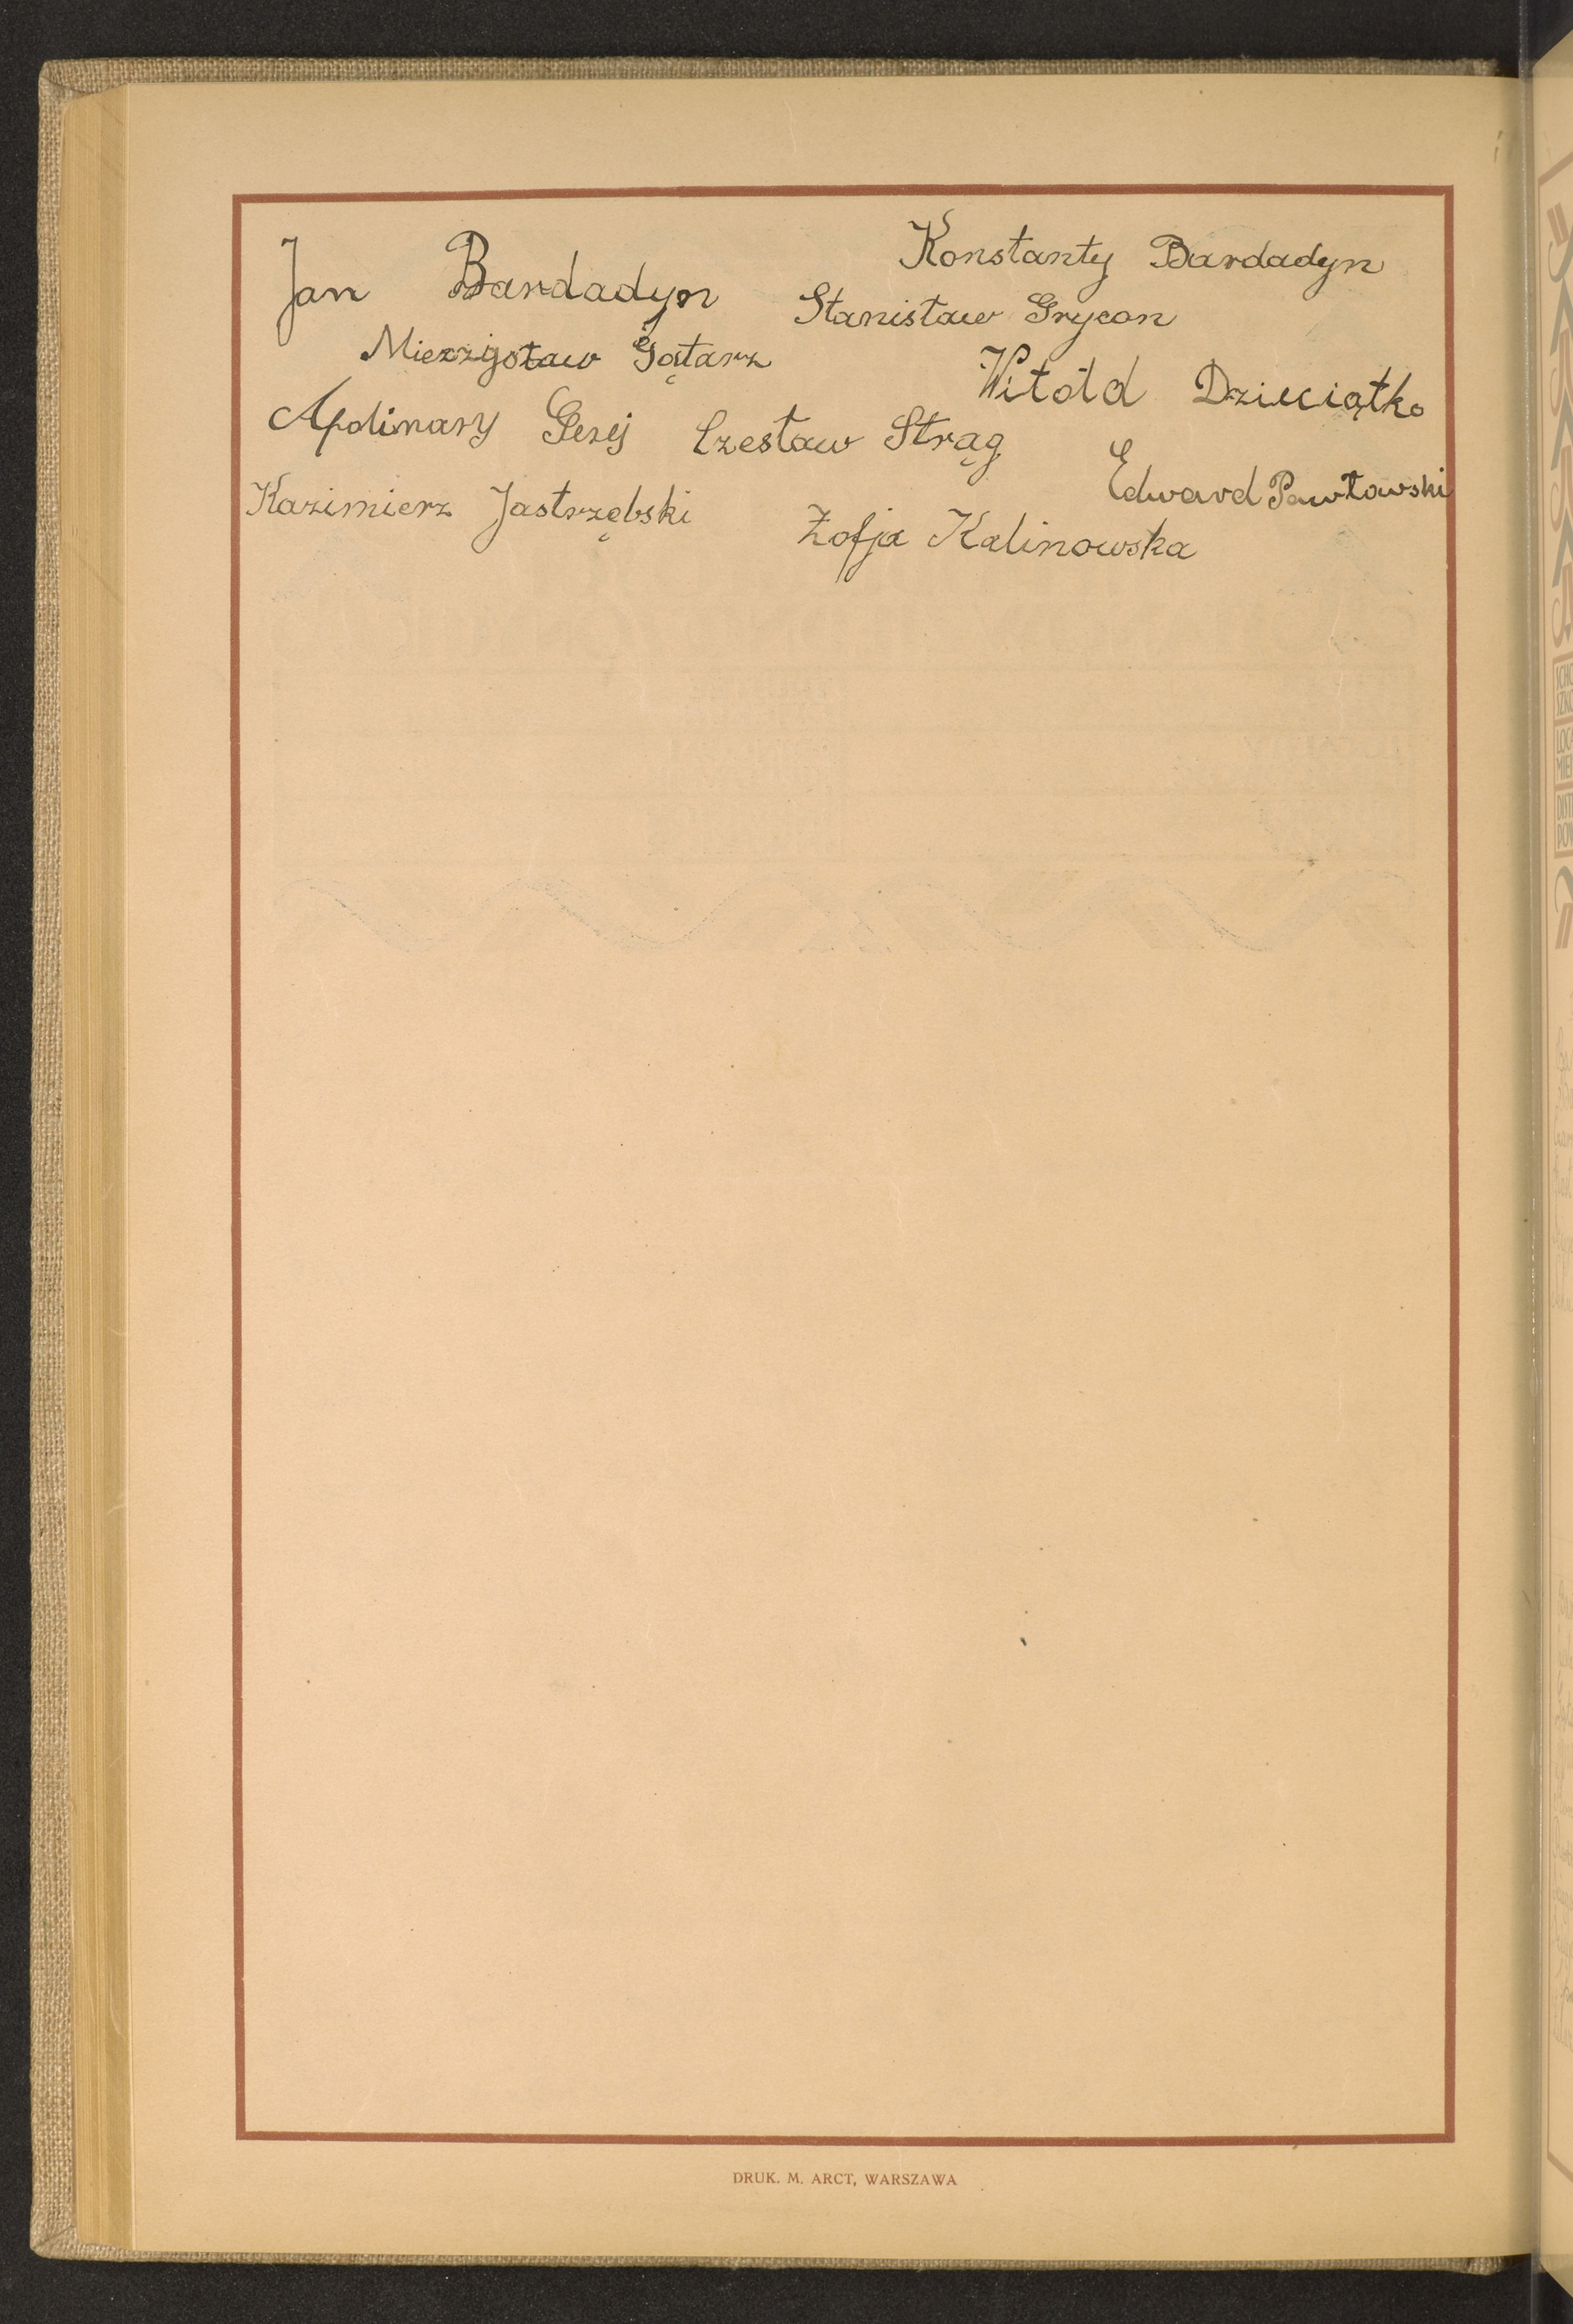 Jan Bardadyn Konstanty Bardadyn
Stanisław Grycan
Mieczysław Gątarz
Witold Dzieciątko
Apolinary Gerej Czesław Strąg
Edward Pawłowski
Kazimierz Jastrzębski Zofja Kalinowska
DRUK. M. ARCT, WARSZAWA